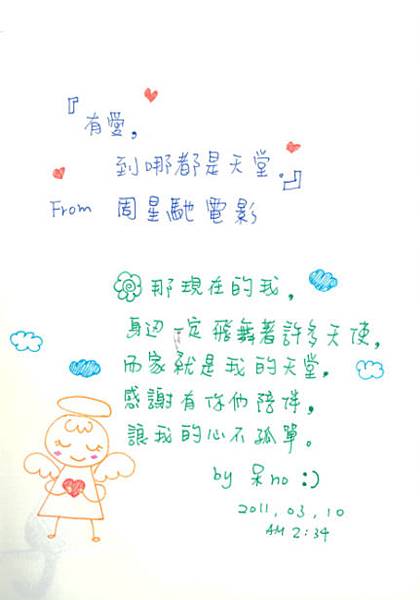 『有愛,
到哪都是天堂.』
From 周星馳電影
那現在的我,
身边一定飛舞著許多天使,
而家就是我的天堂,
感謝有你們陪伴,
讓我的心不孤單。
by 呆no :)
2011.03.10
AM 2:34